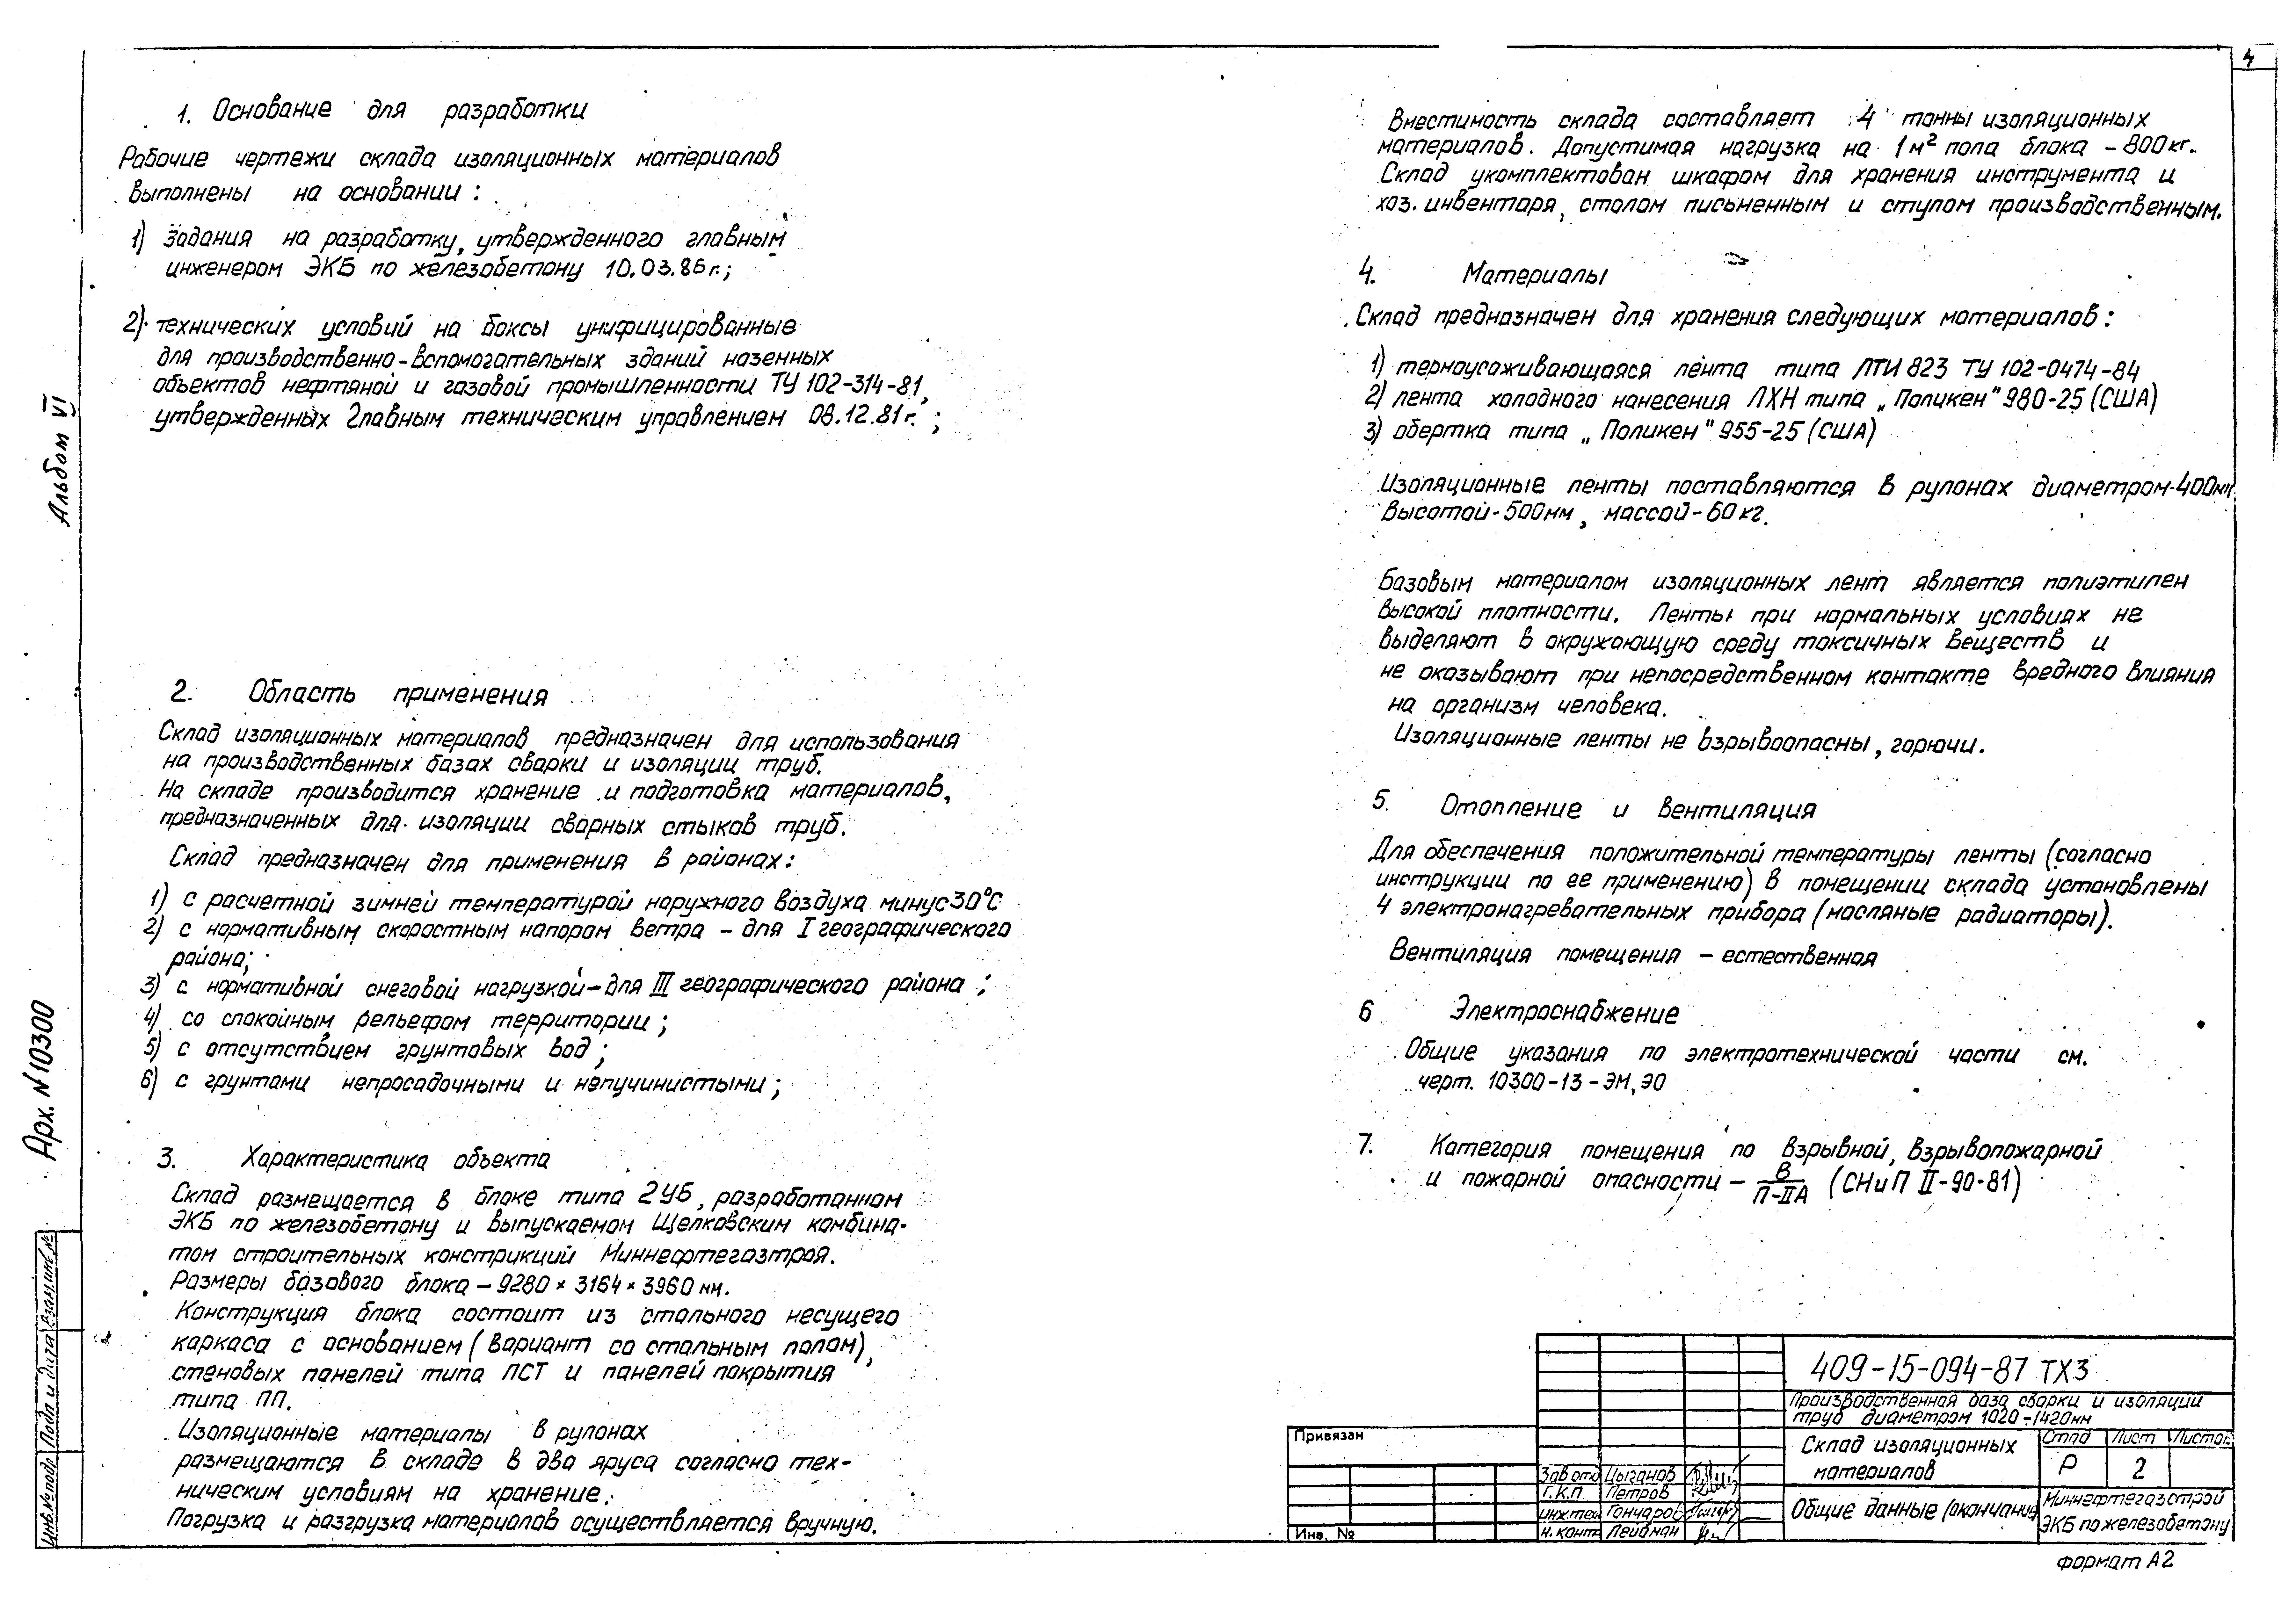 4
1. Основание для разработки
Рабочие чертежи склада изоляционных материалов
выполнены на основании:
1) задания на разработку, утвержденного главным
инженером ЭКБ по железобетону 10.03.86г.;
2) технических условий на боксы унифицированные
для производственно-вспомогательных зданий наземных
объектов нефтяной и газовой промышленности ТУ 102-314-81,
утвержденных Главным техническим управлением 08.12.81г.;
2. Область применения
Склад изоляционных материалов предназначен для использования
на производственных базах сварки и изоляции труб.
На складе производится хранение и подготовка материалов,
предназначенных для изоляции сварных стыков труб.
Склад предназначен для применения в районах:
1) с расчетной зимней температурой наружного воздуха минус 30°С
2) с нормативным скоростным напором ветра - для I географического
района;
3) с нормативной снеговой нагрузкой - для III географического района;
4) со спокойным рельефом территории;
5) с отсутствием грунтовых вод;
6) с грунтами непросадочными и непучинистыми;
3. Характеристика объекта
Склад размещается в блоке типа 2УБ, разработанном
ЭКБ по железобетону и выпускаемом Щелковским комбина-
том строительных конструкций Миннефтегазтроя.
Размеры базового блока - 9280 × 3164 × 3960 мм.
Конструкция блока состоит из стального несущего
каркаса с основанием (вариант со стальным полом),
стеновых панелей типа ПСТ и панелей покрытия
типа ПП.
Изоляционные материалы в рулонах
размещаются в складе в два яруса согласно тех-
ническим условиям на хранение.
Погрузка и разгрузка материалов осуществляется вручную.
Вместимость склада составляет 4 тонны изоляционных
материалов. Допустимая нагрузка на 1м² пола блока - 800кг.
Склад укомплектован шкафом для хранения инструмента и
хоз. инвентаря, столом письменным и стулом производственным.
4. Материалы
Склад предназначен для хранения следующих материалов:
1) термоусаживающаяся лента типа ЛТИ 823 ТУ 102-0474-84
2) лента холодного нанесения ЛХН типа „Поликен" 980-25 (США)
3) обертка типа „Поликен" 955-25 (США)
Изоляционные ленты поставляются в рулонах диаметром-400мм
высотой-500мм, массой-60кг.
Базовым материалом изоляционных лент является полиэтилен
высокой плотности. Ленты при нормальных условиях не
выделяют в окружающую среду токсичных веществ и
не оказывают при непосредственном контакте вредного влияния
на организм человека.
Изоляционные ленты не взрывоопасны, горючи.
5. Отопление и вентиляция
Для обеспечения положительной температуры ленты (согласно
инструкции по ее применению) в помещении склада установлены
4 электронагревательных прибора (масляные радиаторы).
Вентиляция помещения - естественная
6 Электроснабжение
Общие указания по электротехнической части см.
черт. 10300-13-ЭМ, ЭО
7. Категория помещения по взрывной, взрывопожарной
и пожарной опасности - В/П-IIА (СНиП II-90-81)
Альбом VI
Арх. N 10300
Взам.инв.№
Подп и дата
Инв.№ подл
Привязан
Инв. №
Зав отд Цыганов
Г.К.П. Петров
инж.тех Гончаров
н.конт Лейдман
409-15-094-87 ТХ3
Производственная база сварки и изоляции
труб диаметром 1020-1420мм
Склад изоляционных
материалов
Стад Лист Листов
Р 2
Общие данные (окончание)
Миннефтегазстрой
ЭКБ по железобетону
формат А2